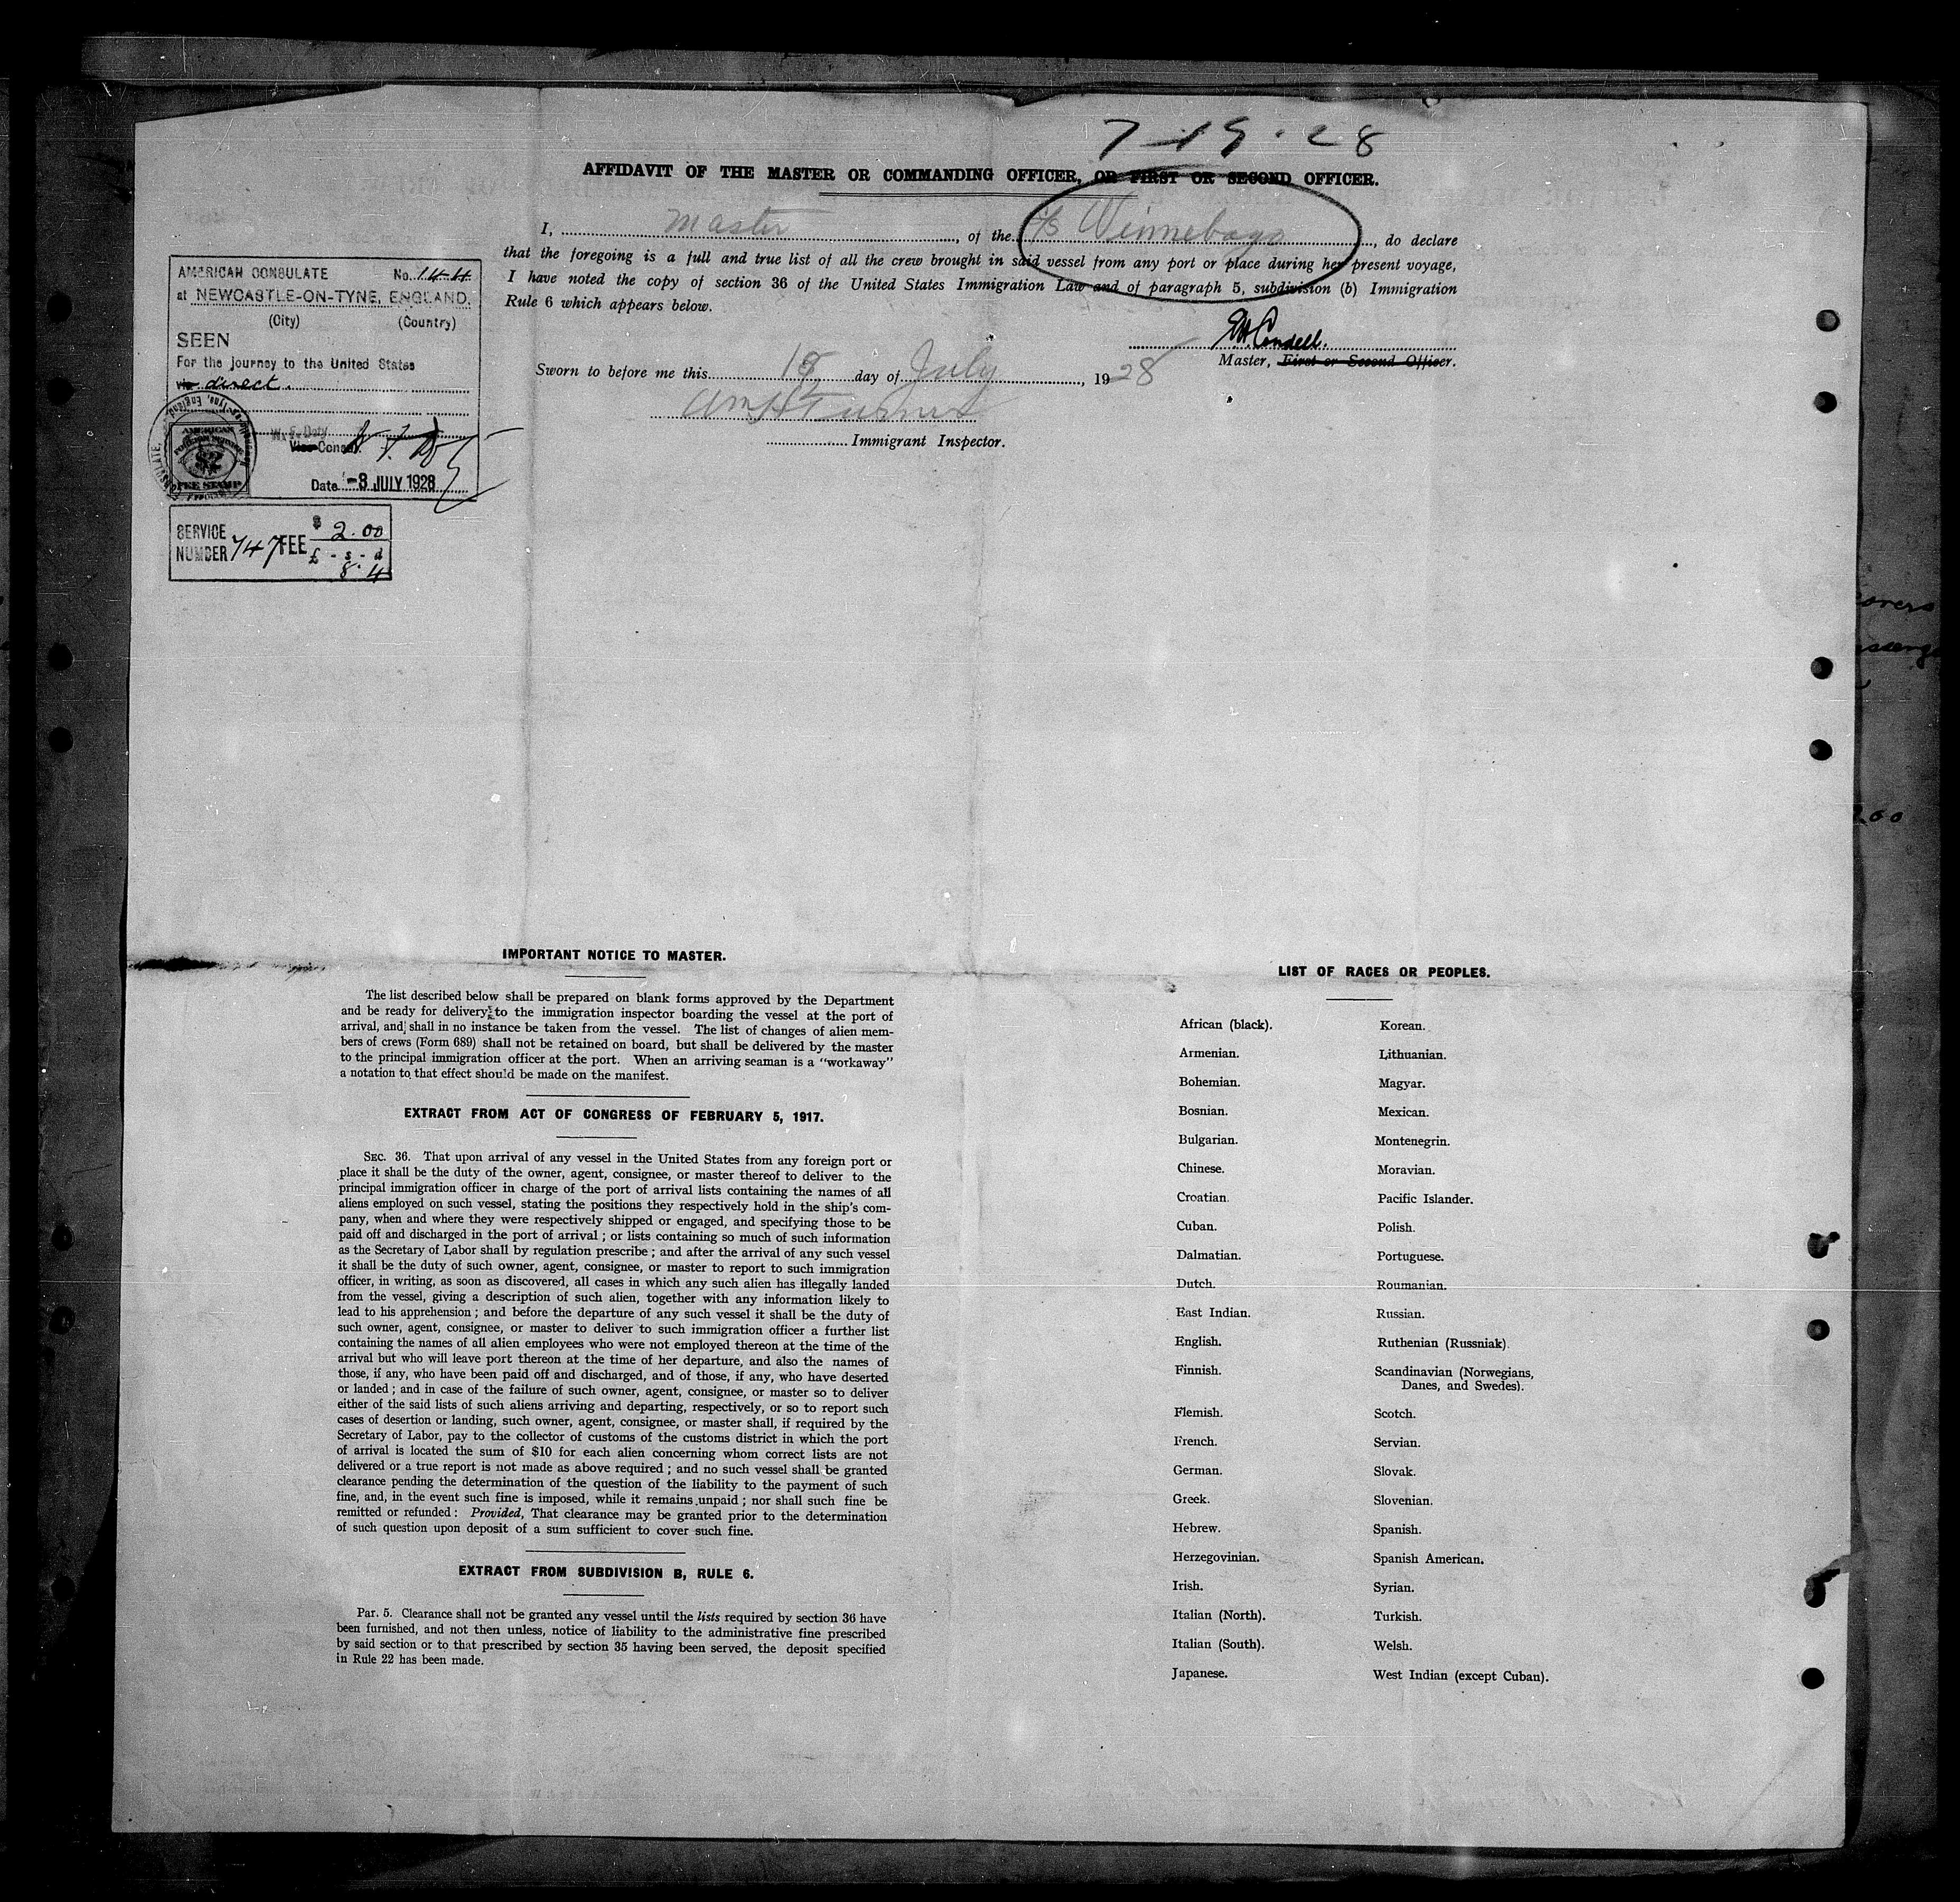 7-19-28
AFFIDAVIT OF THE MASTER OR COMMANDING OFFICER, OR FIRST OR SECOND OFFICER.
I, Master, of the S/S Winnebago, do declare
that the foregoing is a full and true list of all the crew brought in said vessel from any port or place during her present voyage,
I have noted the copy of section 36 of the United States Immigration Law and of paragraph 5, subdivision (b) Immigration
Rule 6 which appears below.
Master, First or Second Officer.
Sworn to before me this 18 day of July, 1928
Immigrant Inspector.
AMERICAN CONSULATE No. 144
at NEWCASTLE-ON-TYNE, ENGLAND.
(City) (Country)
SEEN
For the journey to the United States
via direct.
Vice Consul
AMERICAN
FEE STAMP
Date -3 JULY 1928
SERVICE NUMBER 747 FEE $ 2.00
£ - s - d
8.4
IMPORTANT NOTICE TO MASTER.
The list described below shall be prepared on blank forms approved by the Department
and be ready for delivery to the immigration inspector boarding the vessel at the port of
arrival, and shall in no instance be taken from the vessel. The list of changes of alien mem-
bers of crews (Form 689) shall not be retained on board, but shall be delivered by the master
to the principal immigration officer at the port. When an arriving seaman is a "workaway"
a notation to that effect should be made on the manifest.
EXTRACT FROM ACT OF CONGRESS OF FEBRUARY 5, 1917.
SEC. 36. That upon arrival of any vessel in the United States from any foreign port or
place it shall be the duty of the owner, agent, consignee, or master thereof to deliver to the
principal immigration officer in charge of the port of arrival lists containing the names of all
aliens employed on such vessel, stating the positions they respectively hold in the ship's com-
pany, when and where they were respectively shipped or engaged, and specifying those to be
paid off and discharged in the port of arrival; or lists containing so much of such information
as the Secretary of Labor shall by regulation prescribe; and after the arrival of any such vessel
it shall be the duty of such owner, agent, consignee, or master to report to such immigration
officer, in writing, as soon as discovered, all cases in which any such alien has illegally landed
from the vessel, giving a description of such alien, together with any information likely to
lead to his apprehension; and before the departure of any such vessel it shall be the duty of
such owner, agent, consignee, or master to deliver to such immigration officer a further list
containing the names of all alien employees who were not employed thereon at the time of the
arrival but who will leave port thereon at the time of her departure, and also the names of
those, if any, who have been paid off and discharged, and of those, if any, who have deserted
or landed; and in case of the failure of such owner, agent, consignee, or master so to deliver
either of the said lists of such aliens arriving and departing, respectively, or so to report such
cases of desertion or landing, such owner, agent, consignee, or master shall, if required by the
Secretary of Labor, pay to the collector of customs of the customs district in which the port
of arrival is located the sum of $10 for each alien concerning whom correct lists are not
delivered or a true report is not made as above required; and no such vessel shall be granted
clearance pending the determination of the question of the liability to the payment of such
fine, and, in the event such fine is imposed, while it remains unpaid; nor shall such fine be
remitted or refunded: Provided, That clearance may be granted prior to the determination
of such question upon deposit of a sum sufficient to cover such fine.
EXTRACT FROM SUBDIVISION B, RULE 6.
Par. 5. Clearance shall not be granted any vessel until the lists required by section 36 have
been furnished, and not then unless, notice of liability to the administrative fine prescribed
by said section or to that prescribed by section 35 having been served, the deposit specified
in Rule 22 has been made.
LIST OF RACES OR PEOPLES.
African (black).
Armenian.
Bohemian.
Bosnian.
Bulgarian.
Chinese.
Croatian.
Cuban.
Dalmatian.
Dutch.
East Indian.
English.
Finnish.
Flemish.
French.
German.
Greek.
Hebrew.
Herzegovinian.
Irish.
Italian (North).
Italian (South).
Japanese.
Korean.
Lithuanian.
Magyar.
Mexican.
Montenegrin.
Moravian.
Pacific Islander.
Polish.
Portuguese.
Roumanian.
Russian.
Ruthenian (Russniak).
Scandinavian (Norwegians,
Danes, and Swedes).
Scotch.
Servian.
Slovak.
Slovenian.
Spanish.
Spanish American.
Syrian.
Turkish.
Welsh.
West Indian (except Cuban).